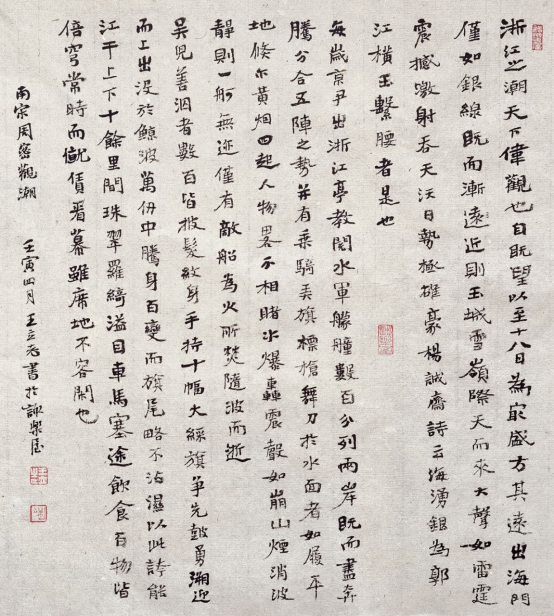 浙江之潮天下偉觀也自既望以至十八日為最盛方其遠出海門
僅如銀線既而漸遠近則玉城雪嶺際天而來大聲如雷霆
震撼激射吞天沃日勢極雄豪楊誠齋詩云海湧銀為郭
江橫玉繫腰者是也
每歲京尹出浙江亭教閱水軍艨艟數百分列兩岸既而盡奔
騰分合五陣之勢并有乘騎弄旗標槍舞刀於水面者如履平
地倏尓黃烟四起人物畧不相睹水爆轟震聲如崩山煙消波
靜則一舸無迹僅有敵船為火所焚隨波而逝
吳兒善泅者數百皆披髮紋身手持十幅大綵旗爭先鼓勇溯迎
而上出沒於鯨波萬仞中騰身百變而旗尾略不沾濕以此誇能
江干上下十餘里間珠翠羅綺溢目車馬塞途飲食百物皆
倍穹常時而僦賃看幕雖席地不容閑也
南宋周密觀潮 壬寅四月王立志書於